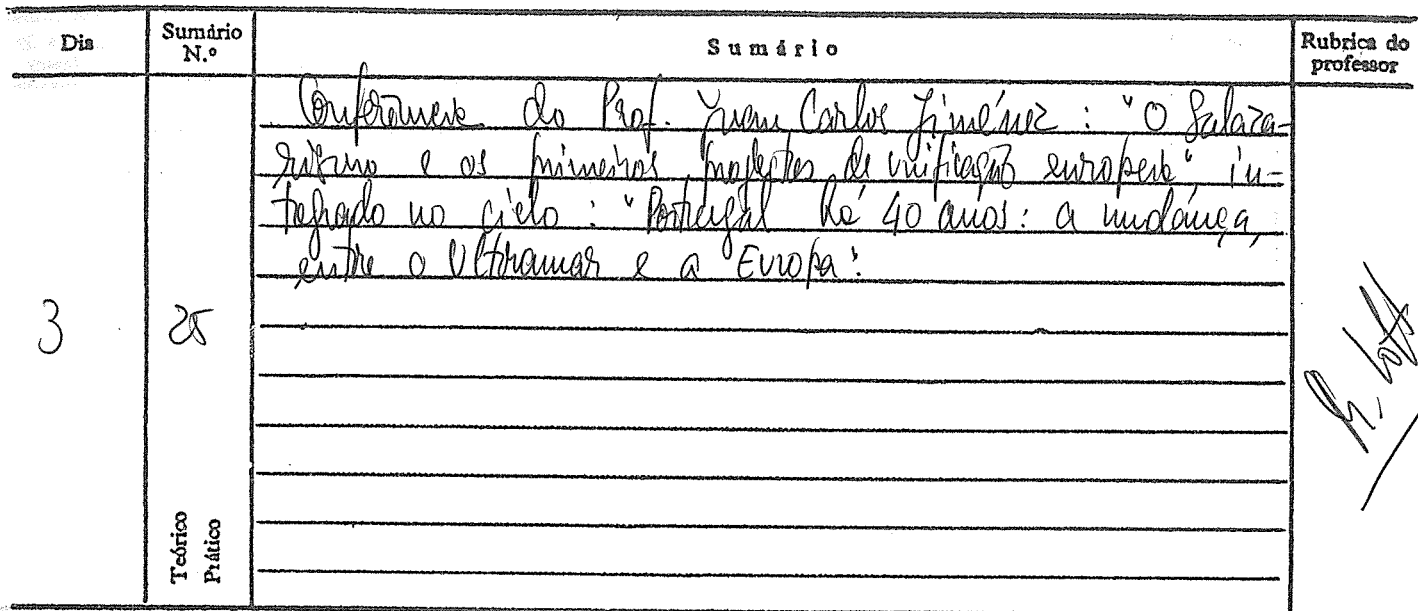 Dia
Sumário N.º
Sumário
Rubrica do professor
Conferência do Prof. Juan Carlos Jiménez : "O Salaza-
rismo e os primeiros projectos de unificação europeia" in-
tegrado no ciclo : "Portugal há 40 anos: a mudança,
entre o Ultramar e a Europa".
3
25
Teórico
Prático